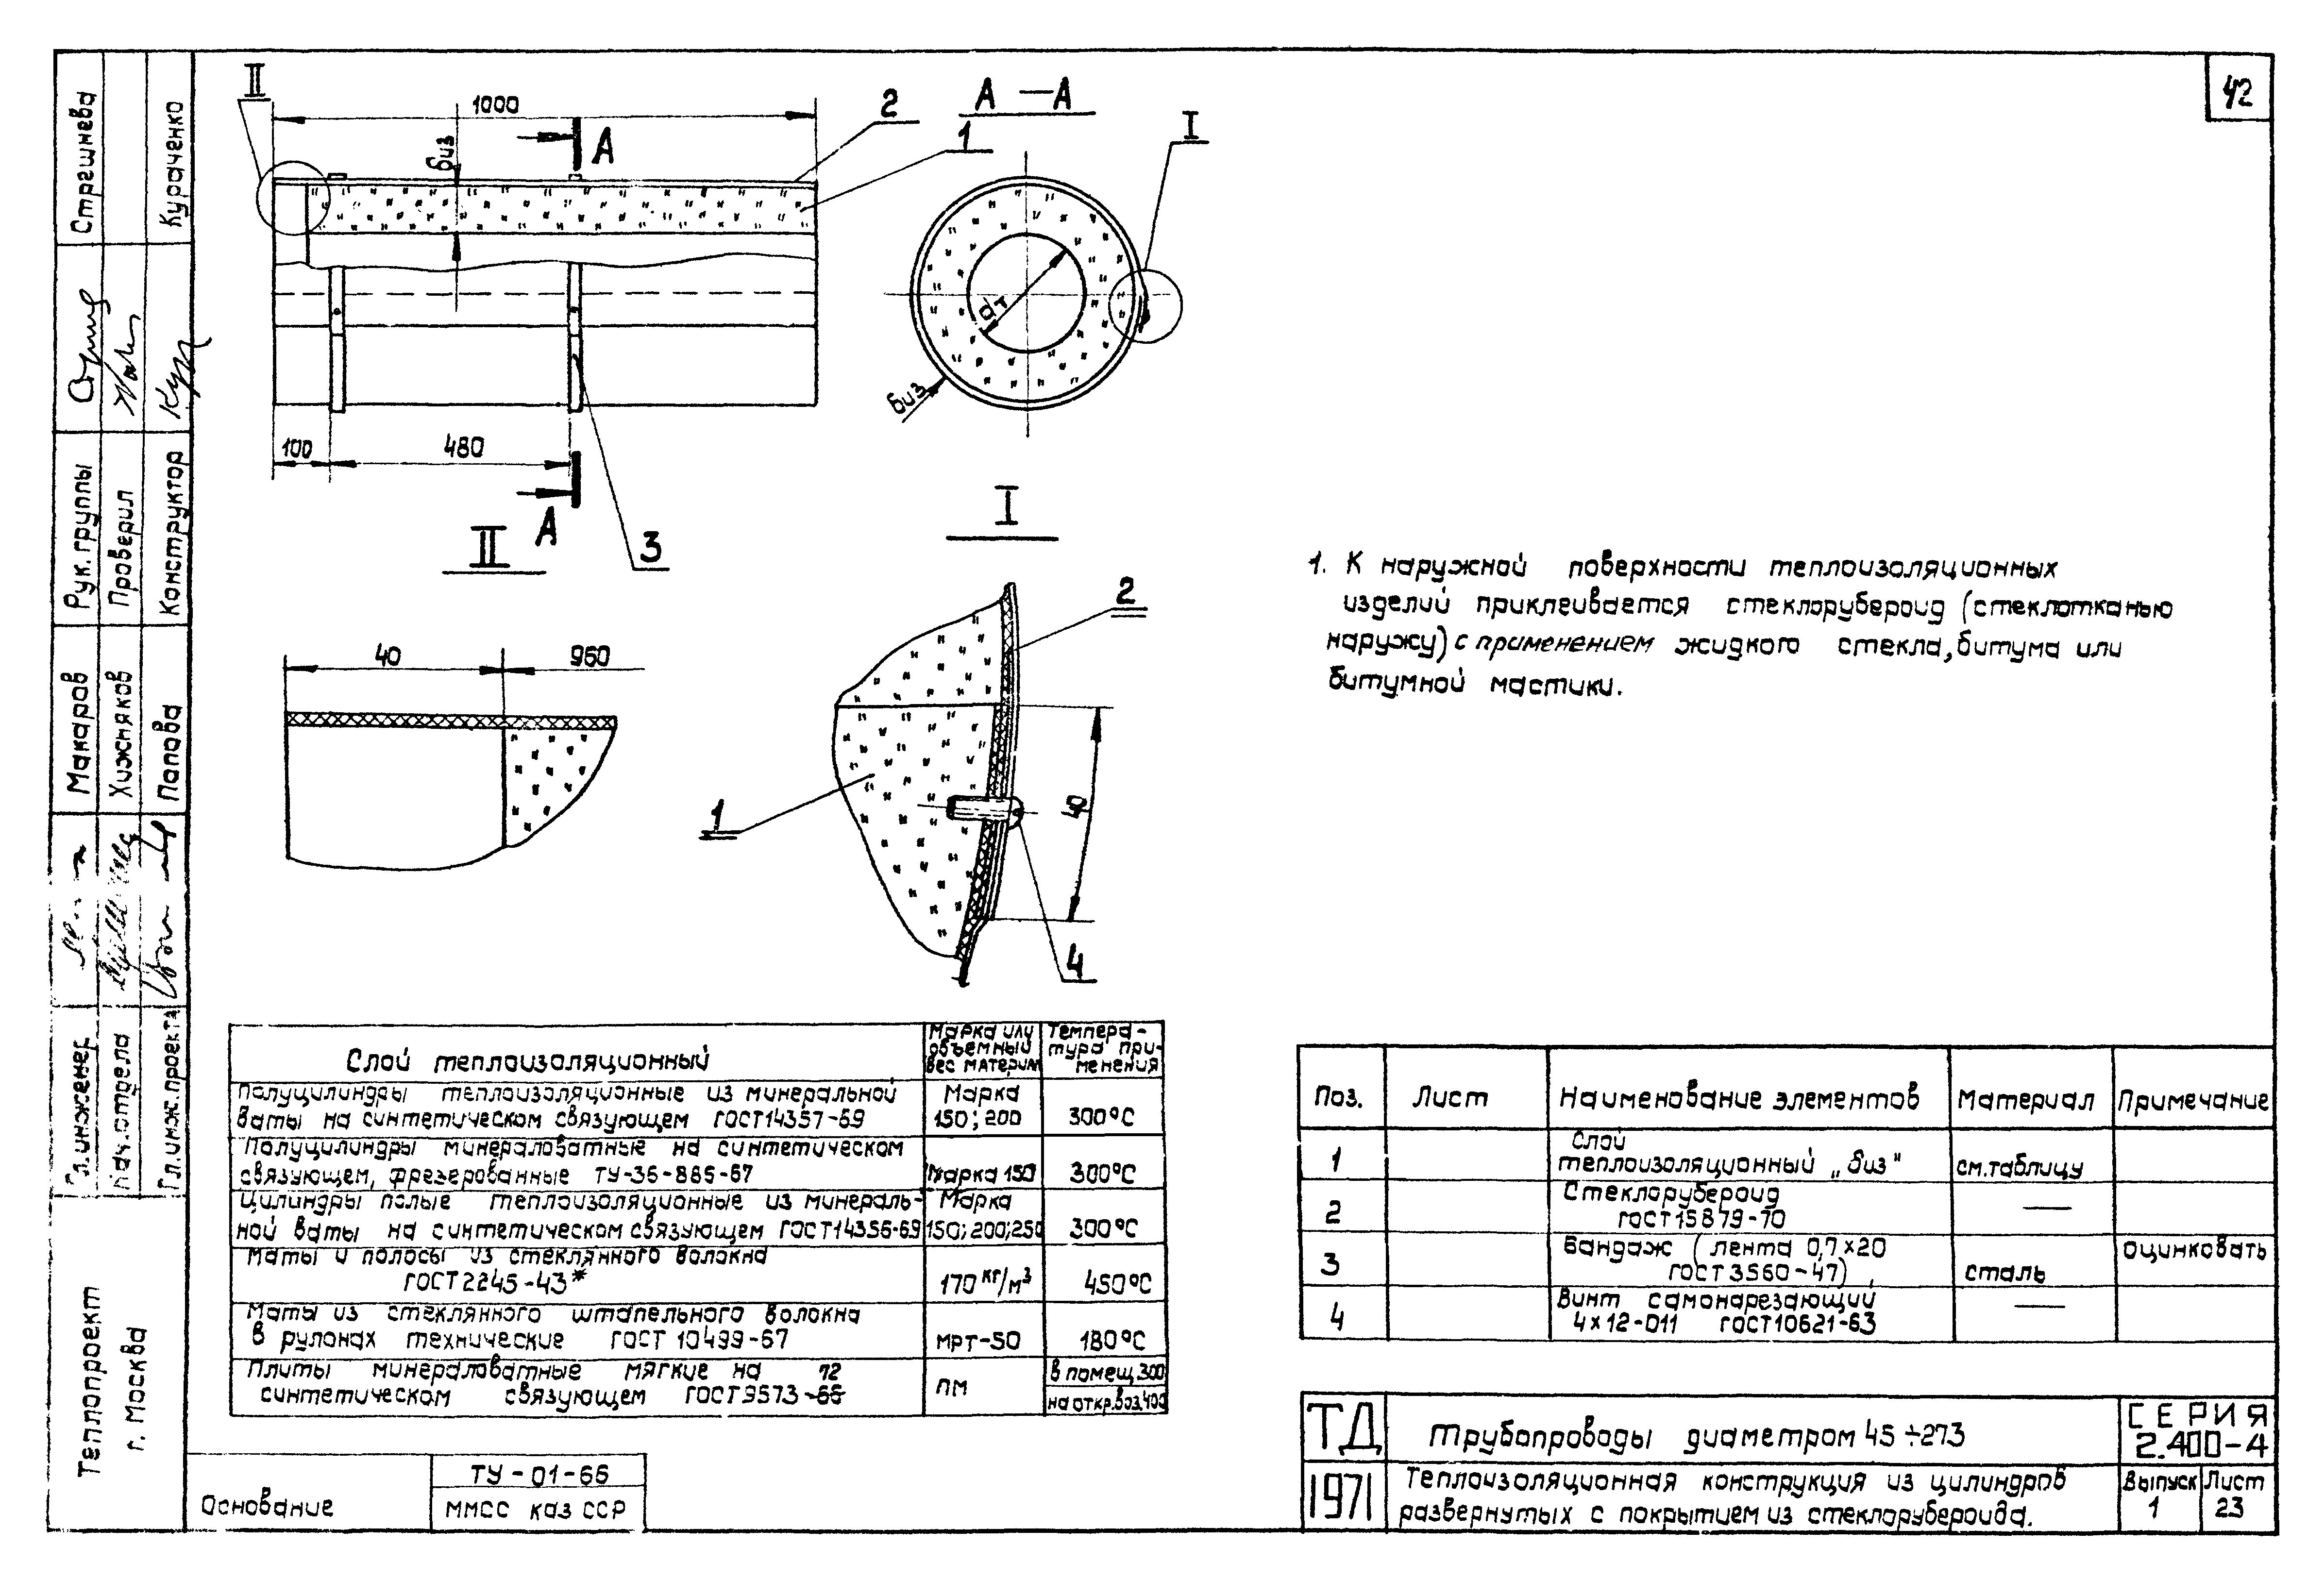 42
II
1000
2
А — А
1
I
А
биз
dт
биз
100
480
А
3
II
I
40
960
2
1
40
4
1. К наружной поверхности теплоизоляционных
изделий приклеивается стеклорубероид (стеклотканью
наружу) с применением жидкого стекла, битума или
битумной мастики.
Слой теплоизоляционный
Марка или
объемный
вес материал
Темпера-
тура при-
менения
Полуцилиндры теплоизоляционные из минеральной
ваты на синтетическом связующем ГОСТ14357-69
Марка
150; 200
300°С
Полуцилиндры минераловатные на синтетическом
связующем, фрезерованные ТУ-36-885-67
Марка 150
300°С
Цилиндры полые теплоизоляционные из минераль-
ной ваты на синтетическом связующем ГОСТ14356-69
Марка
150; 200; 250
300°С
Маты и полосы из стеклянного волокна
ГОСТ2245-43*
170 кг/м³
450°С
Маты из стеклянного штапельного волокна
в рулонах технические ГОСТ 10499-67
МРТ-50
180°С
Плиты минераловатные мягкие на 72
синтетическом связующем ГОСТ9573-66
ПМ
в помещ. 300
на откр.воз.400
Поз.
Лист
Наименование элементов
Материал
Примечание
1
Слой
теплоизоляционный „биз"
см.таблицу
2
Стеклорубероид
ГОСТ15879-70
—
3
Бандаж (лента 0,7×20
ГОСТ3560-47)
сталь
оцинковать
4
Винт самонарезающий
4×12-011 ГОСТ10621-63
—
ТД
1971
Трубопроводы диаметром 45÷273
Теплоизоляционная конструкция из цилиндров
развернутых с покрытием из стеклорубероида.
СЕРИЯ
2.400-4
Выпуск
1
Лист
23
Основание
ТУ-01-66
ММСС каз ССР
Теплопроект
г. Москва
Гл.инженер
Макаров
Рук.группы
Стрешнева
Нач.отдела
Хижняков
Проверил
Гл.инж.проекта
Попова
Конструктор
Кураченко